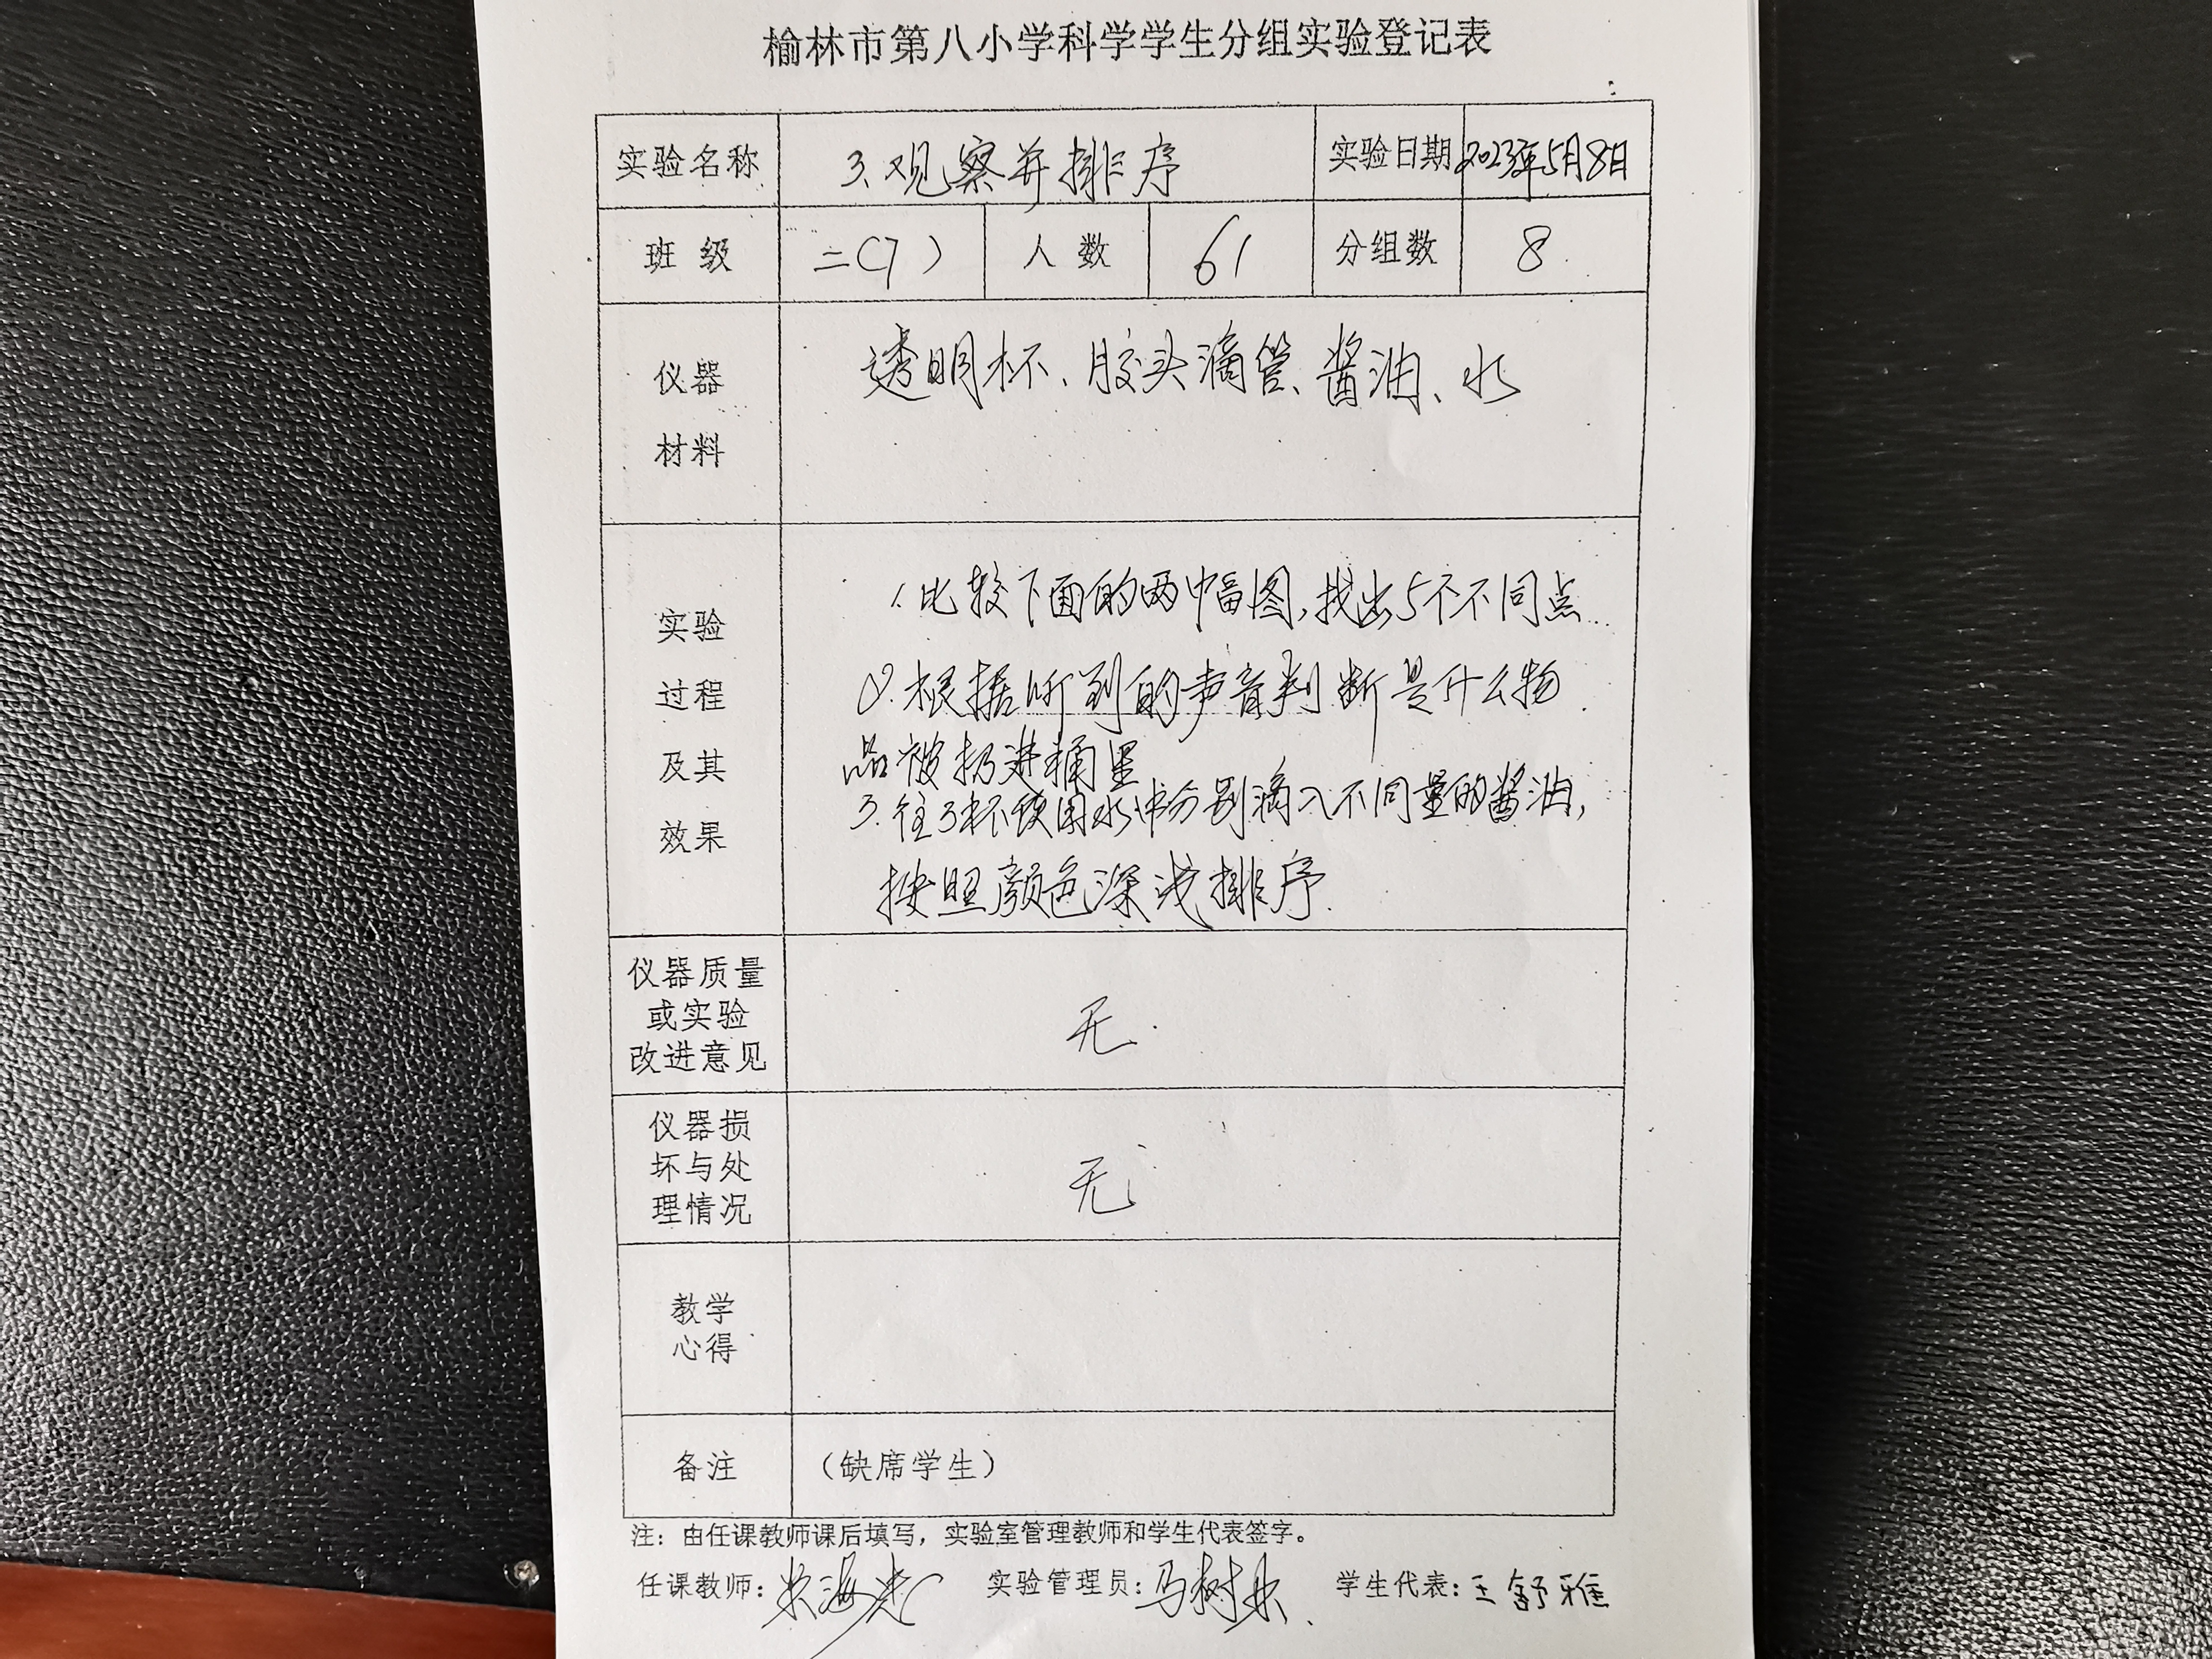 榆林市第八小学科学学生分组实验登记表
实验名称 3、观察并排序 实验日期 2023年5月8日
班 级 二(7) 人 数 61 分组数 8
仪器
材料
透明杯、胶头滴管、酱油、水
实验
过程
及其
效果
1.比较下面的两幅图,找出5个不同点
2.根据听到的声音判断是什么物
品被扔进桶里
3.往3杯饮用水中分别滴入不同量的酱油,
按照颜色深浅排序.
仪器质量
或实验
改进意见
无.
仪器损
坏与处
理情况
无
教学
心得
备注 (缺席学生)
注:由任课教师课后填写,实验室管理教师和学生代表签字。
任课教师: 实验管理员:马树 学生代表:王舒雅